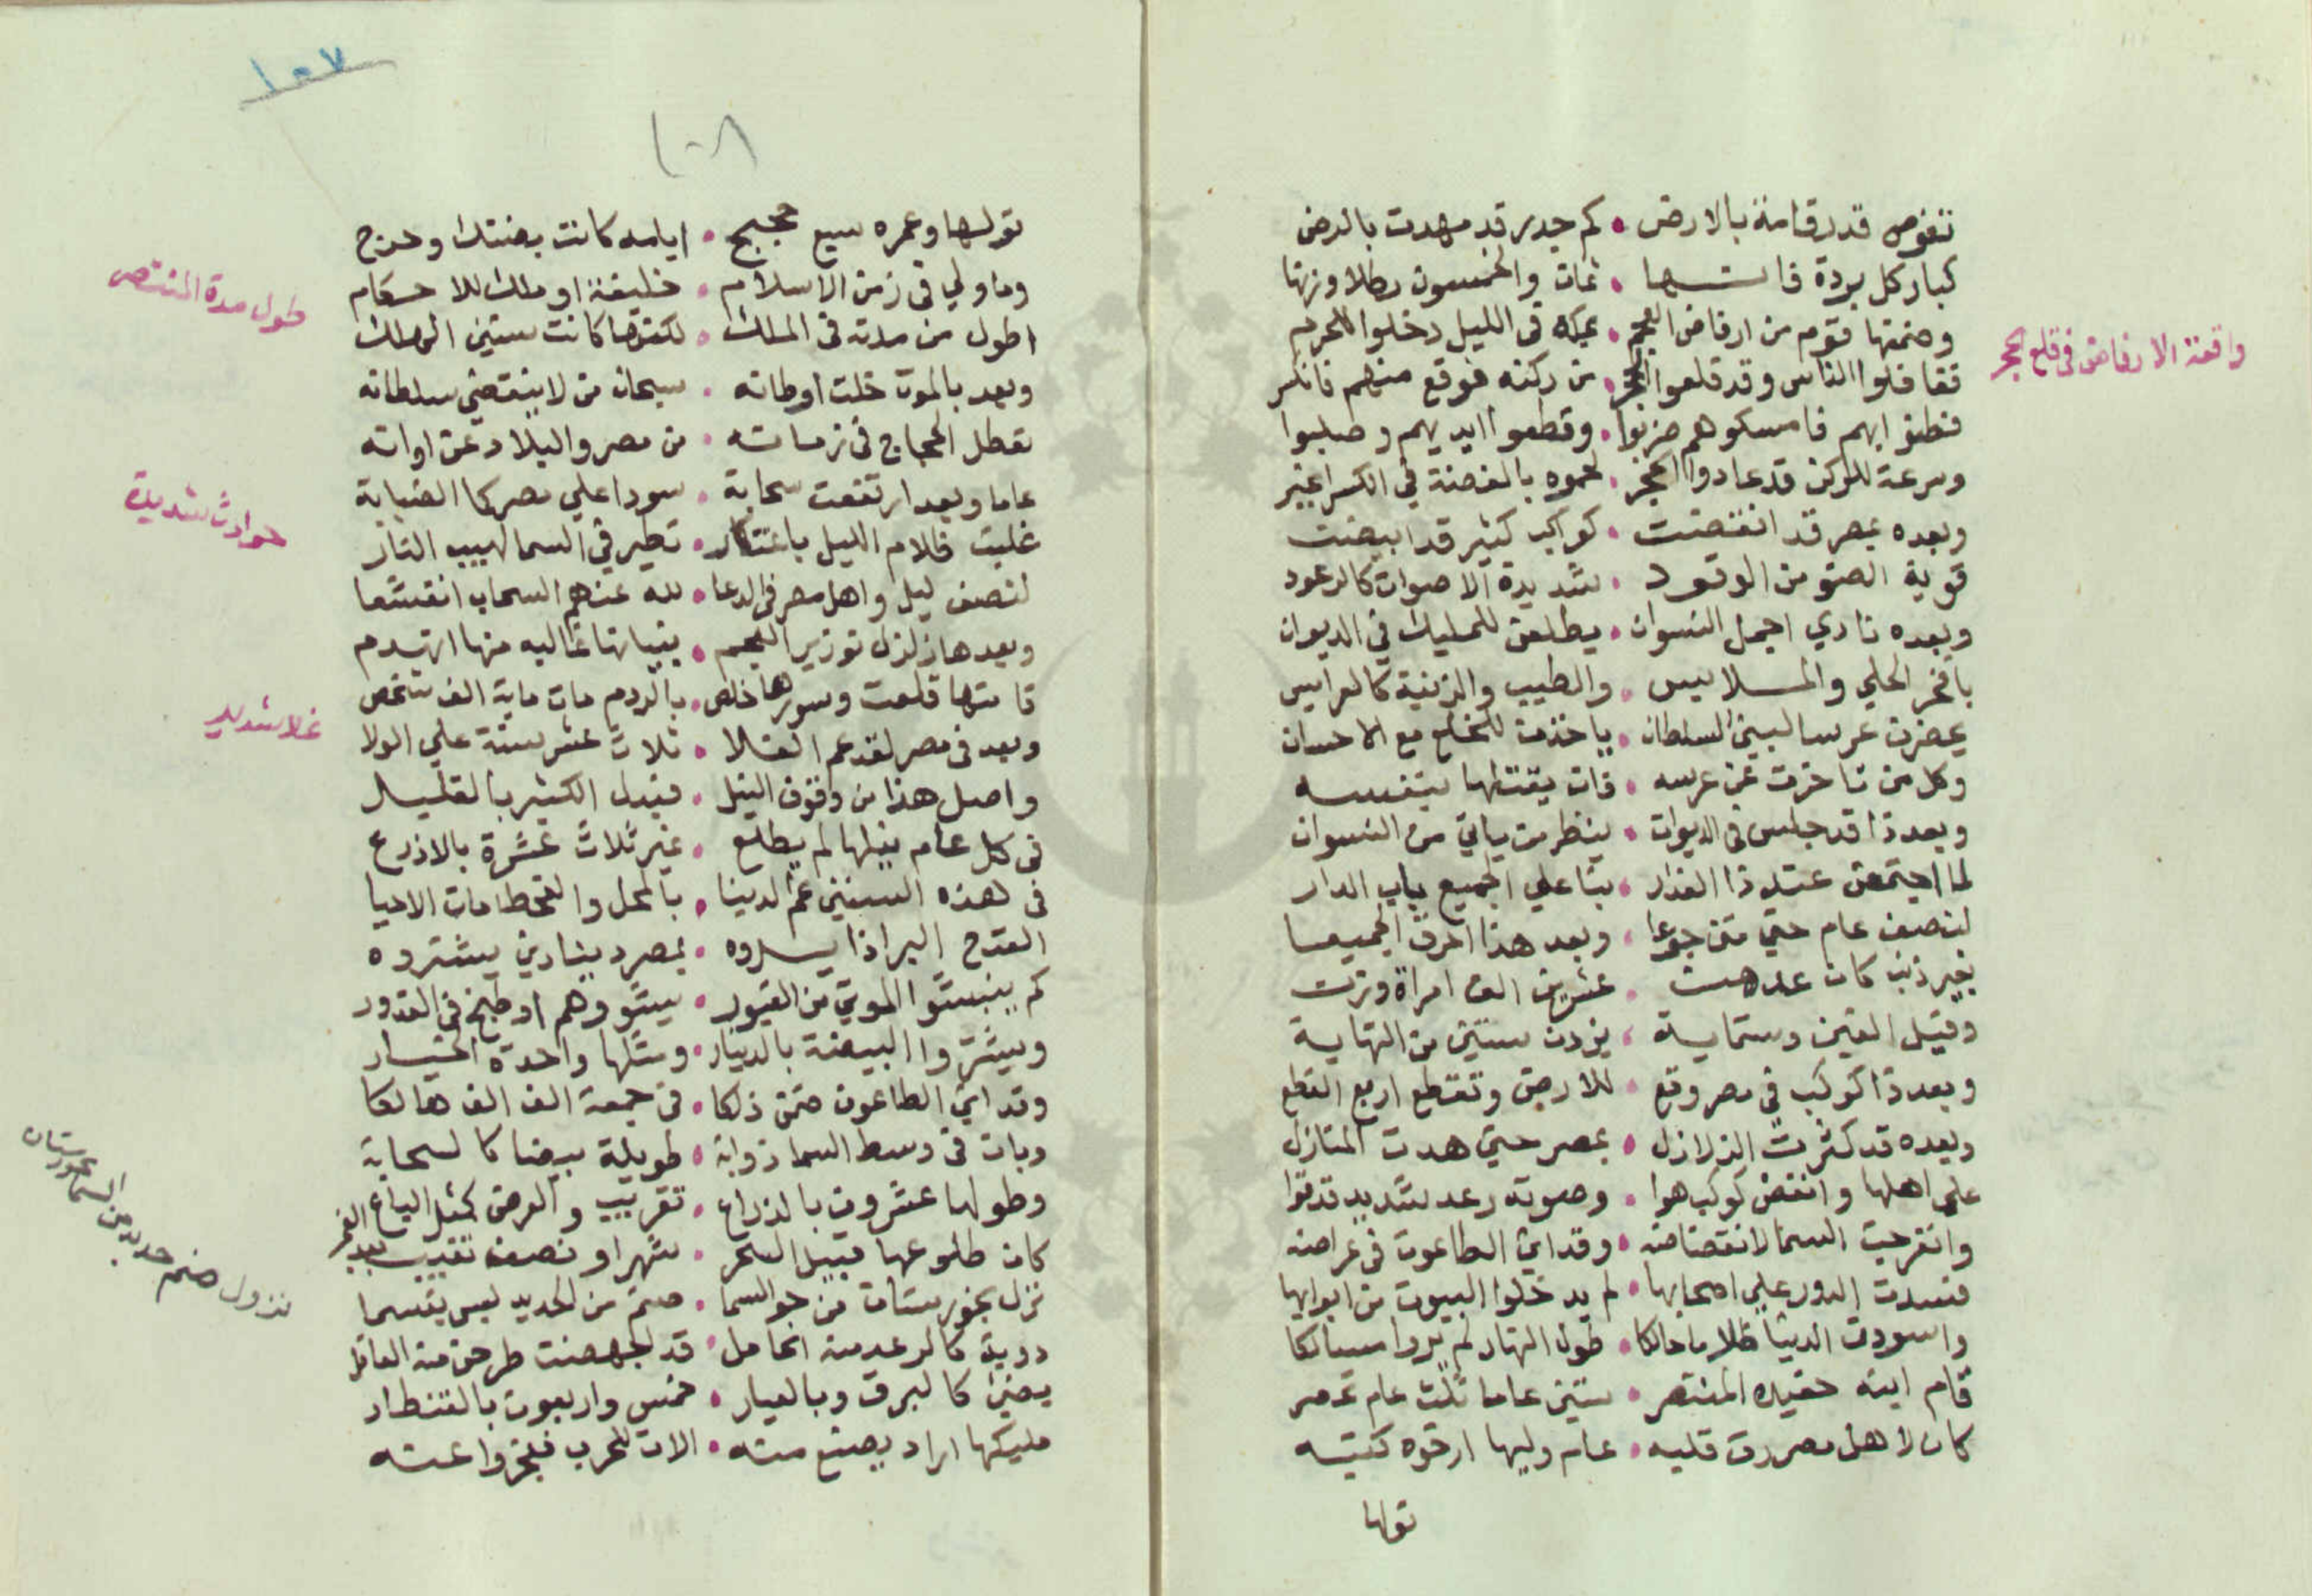 تغوص قدر قامة بالارض • كم جدر قد مهدت بالرض
كبار كل بردة فاتها • ثمان والخمسون رطلا وزنها
وضمنها قوم من ارفاض العجم • بمكه في الليل دخلوا للحرم
فغافلوا الناس وقد قلعوا الحجر • من ركنه فوقع منهم فانكسر
فنظنوا بهم فامسكوهم ضربوا • وقطعوا ايديهم وصلبوا
وسرعة للركن قد عادوا الحجر • لحموه بالفضة في الكسر
وبعده بمصر قد انقضت • كواكب كثير قد ابيضت
قوية الضو من الوقود • شديدة الاصوات كالرعود
وبعده نادي اجمل النسوان • يطلعن للمليك في الديوان
بافخر الحلي والملابيس • والطيب والزينة كالعرايس
يحضرن عرسا لبني السلطان • ياخذن للخلع مع الاحسان
وكل من تاخرت عن عرسه • فان يقتلها بنفسه
وبعد ذا قد جلس في الديوان • ينظر من ياتي من النسوان
لما اجتمعن عند ذا الغدار • بنا علي الجميع باب الدار
لنصف عام حتي متن جوعا • وبعد هذا احرق الجميعا
بغير ذنب كان عدهن • عشرين الف امراة وزن
وقيل الفين وستماية • يزدن ستين من النهاية
وبعد ذا كوكب في مصر وقع • للارض وتقطع اربع القطع
وبعده قد كثرت الزلازل • بمصر حتي هدت المنازل
علي اهلها وانقض كوكب هوا • وصوته رعد شديد قد قوا
وانفرجت السما لانقضاضه • وقد اتي الطاعون في عراضه
فسدت الدور علي اصحابها • لم يدخلوا البيوت من ابوابها
واسودت الدنيا ظلاما حالكا • طول النهار لم يروا مسالكا
قام ابنه حفيده المنتصر • ستين عاما ثلث عام عمر
كان لاهل مصر رق قلبه • عام وليها ارخوه كتبه
تولها
واقعة الارفاض في قلع الحجر
١٠٧
١٠٨
تولها وعمره سبع حجج • ايامه كانت بضنك وحرج
وما ولي في زمن الاسلام • خليفة او ملك للاحكام
اطول من مدته في الملك • لكنها كانت ستين
وبعد بالموت خلت اوطانه • سبحان من لا ينقضي سلطانه
تعطل الحجاج في زمانه • من مصر والبلاد عن اوانه
عاما وبعد ارتفعت سحابة • سودا علي مصر كما الضبابة
غلبت ظلام الليل باعتكار • تطير في السما لهيب النار
لنصف ليل واهل مصر في الدعا • لله عنهم السحاب انقشعا
وبعدها زلزل توزير العجم • بنيانها غاليه منها انهدم
قامتها قلعت وسورها خلص • بالردم مات ماية الف شخص
وبعد في مصر لقد عم الغلا • ثلاث عشر سنة علي الولا
واصل هذا من وقوف النيل • فبدل الكثير بالقليل
في كل عام نيلها لم يطلع • غير ثلاث عشرة بالاذرع
في هذه السنين عم الدينا • بالمحل والقحط مات الاحيا
القدح البر اذا يسروه • بمصر دينارين يشتروه
كم ينبشوا الموتي من القبور • يشووهم او طبخ في القدور
ويشتروا البيضة بالدينار • ومثلها واحدة الخيار
وقد اتي الطاعون ضمن ذلكا • في جمعة الف الف هالكا
وبان في وسط السما ذوابة • طويلة بيضا كالسحابة
وطولها عشرون بالذراع • تقريب والعرض كمثل الباع
كان طلوعها قبيل السحر • شهرا ونصف تغيب بعد الفجر
نزل بخورستان من جو السما • صنم من الحديد ليس يقسما
دوية كالرعد منه الحامل • قد اجهضت طرحن منه
يضئ كالبرق وبالعيار • خمس واربعون بالقنطار
مليكها اراد يصنع منه • الات للحرب فعجزوا عنه
طول مدة المنتصر
حوادث شديدة
غلا شديد
نزول صنم حديد من السما بخورستان